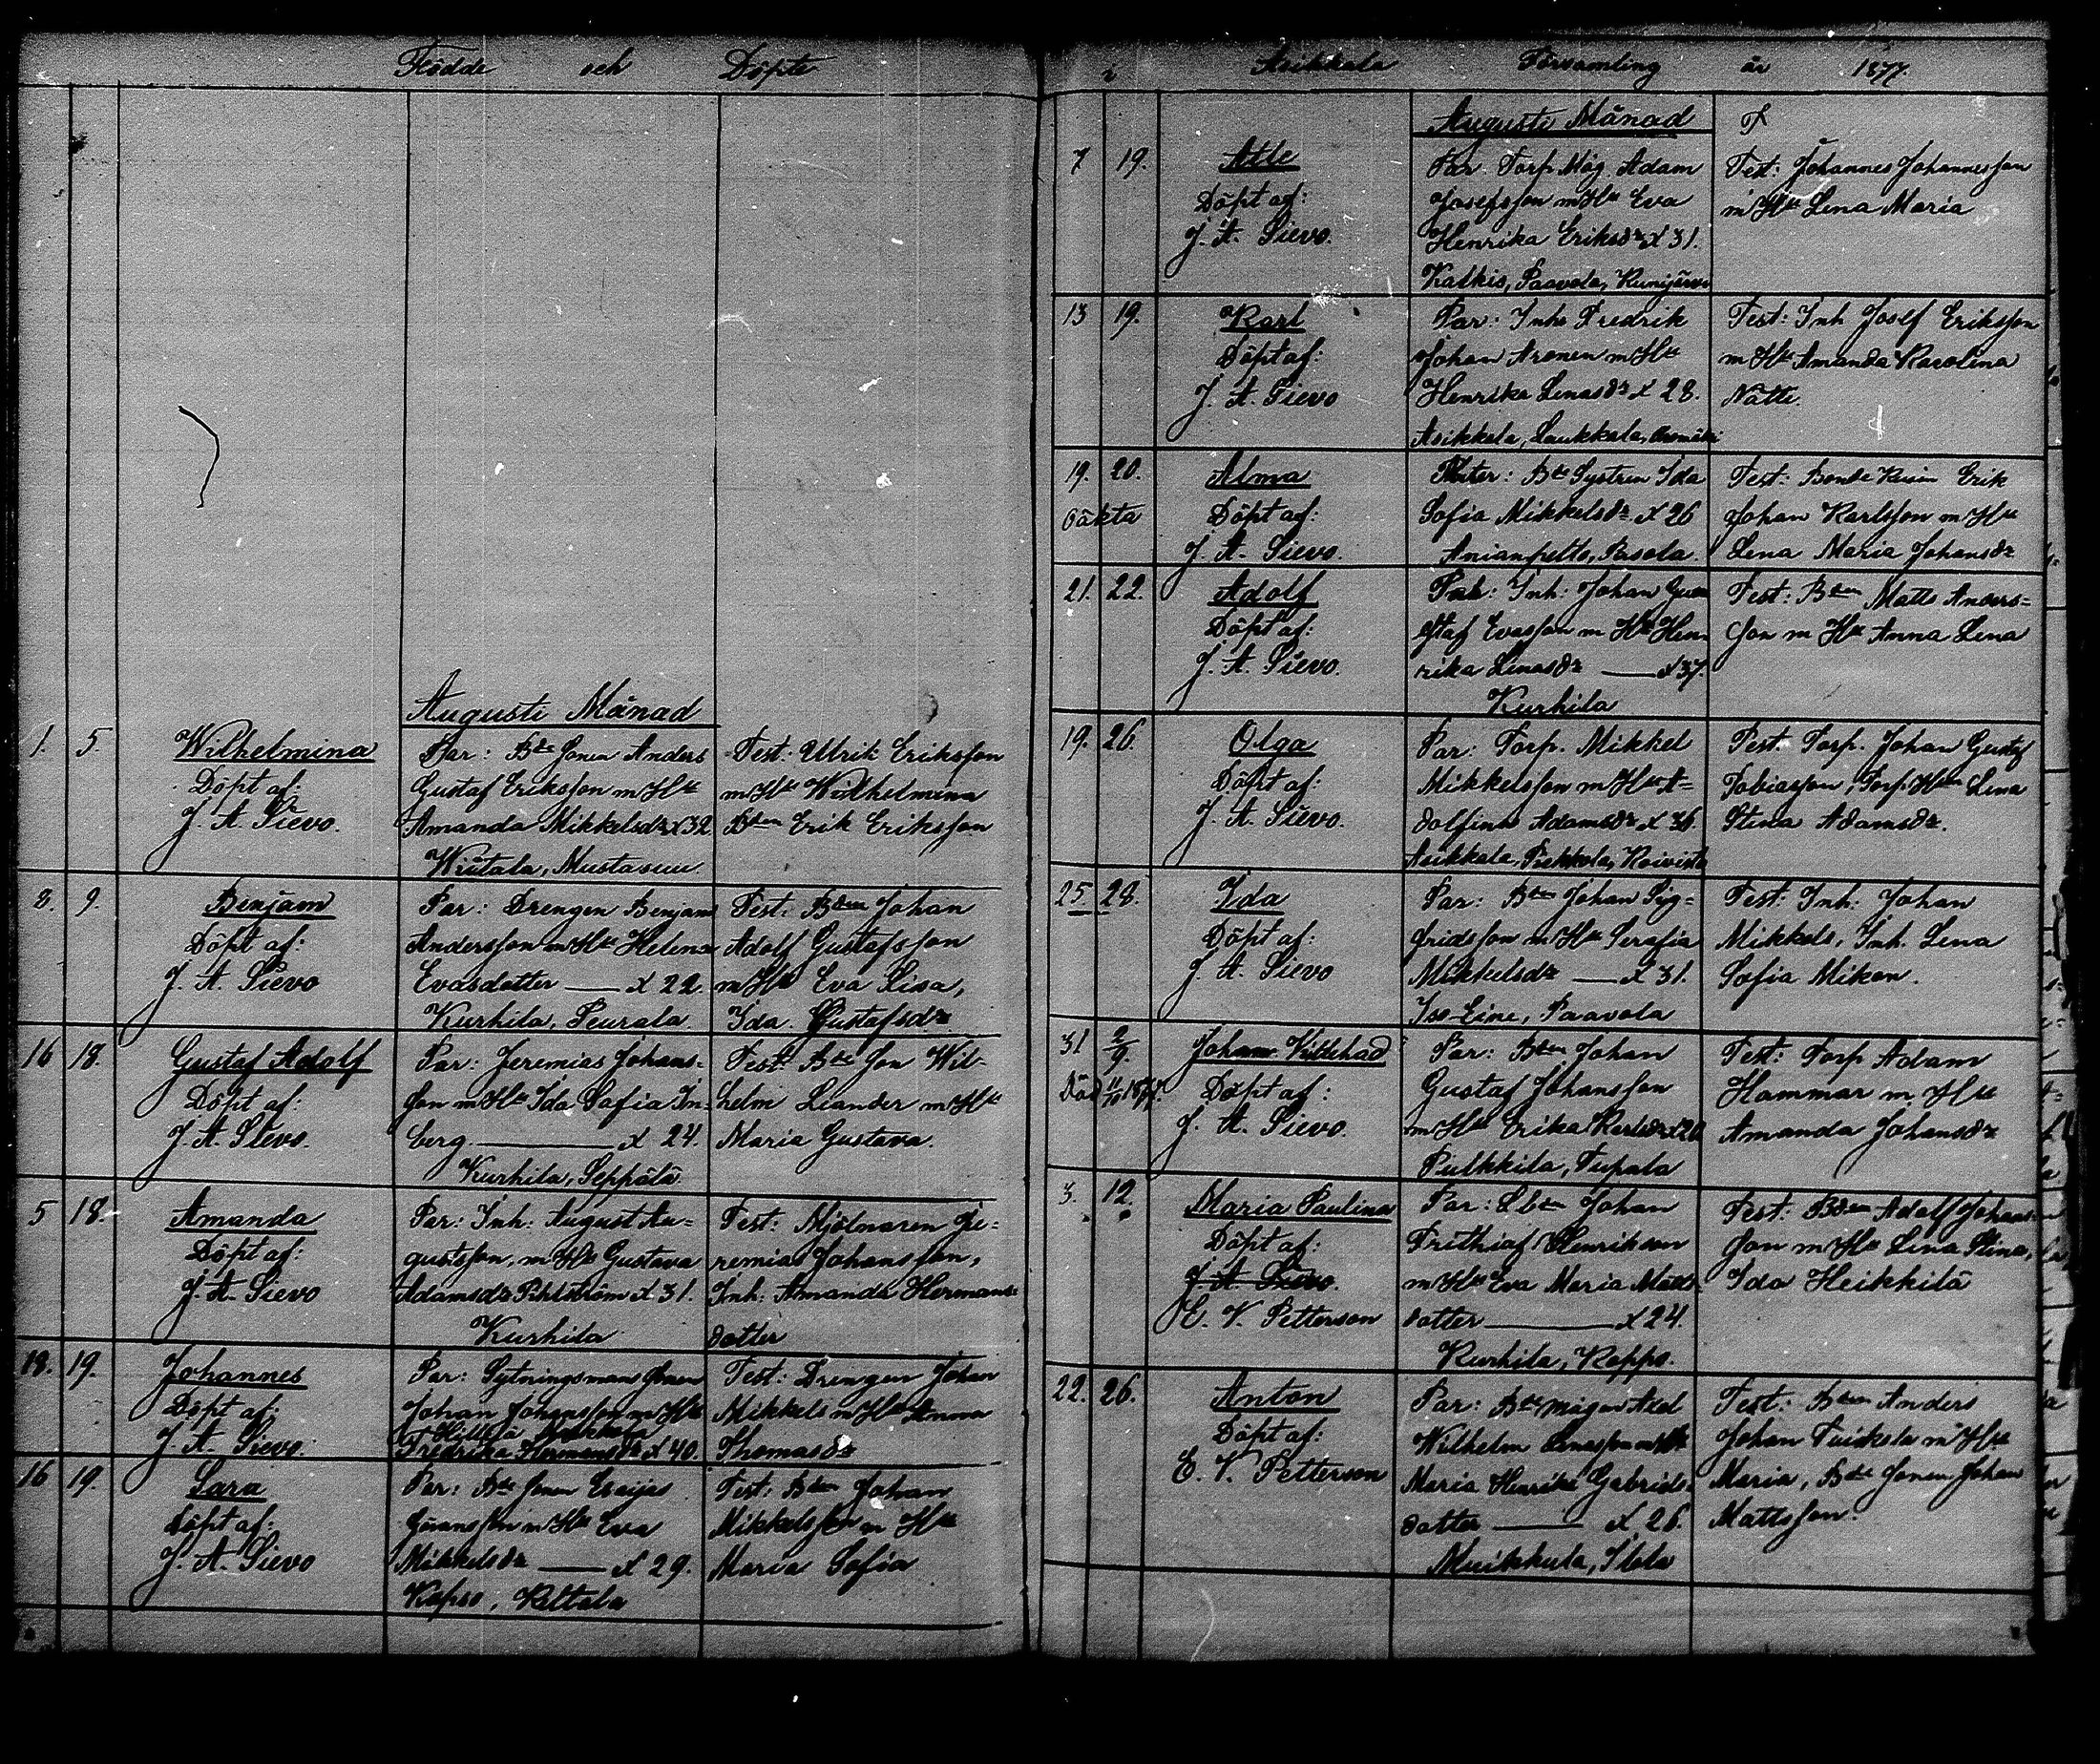 Födde och Döpte
Augusti Månad
1. 5. Wilhelmina
Döpt af:
J. A. Sievo.
Par: Bde Sonen Anders
Gustaf Eriksson m Hu
Amanda Mikkelsdr x 32
Wiitala, Mustasuu.
Test: Ulrik Eriksson
m Hu Wilhelmina
Bden Erik Eriksson
8. 9. Benjam
Döpt af:
J. A. Sievo
Par: Drengen Benjam
Andersson m Hu Helena
Evasdotter — x 22.
Kurhila, Peurala
Test: Bden Johan
Adolf Gustafsson
m Hu Eva Lisa,
Ida Gustafsdr
16 18. Gustaf Adolf
Döpt af:
J. A. Sievo.
Par: Jeremias Johans-
son m Hu Ida Sofia In-
berg — x 24.
Kurhila, Seppälä
Test: Bde Son Wil-
helm Leander m Hu
Maria Gustava.
5 18. Amanda
Döpt af:
J. A. Sievo
Par: Inh: August Au-
gustsson, m Hu Gustava
Adamsdr Pihlström x 31.
Kurhila
Test: Mjölnaren Je-
remias Johansson,
Inh: Amanda Hermans-
dotter
18. 19. Johannes
Döpt af:
J. A. Sievo.
Par: Sytningsmans Sonen
Johan Johansson m Hu
Fredrika Hermansdr x 40.
Test: Drengen Johan
Mikkels m Hu Anna
Thomasdr
16 19. Sara
Döpt af:
J. A. Sievo
Par: Bde Sonen Esaijas
m Hu Eva
Mikkelsdr — x 29.
Kopso, Keltala
Test: Bden Johan
Mikkelsson m Hu
Maria Sofia
i Asikkala Församling år 1877.
Augusti Månad
7 19. Atle
Döpt af:
J. A. Sievo.
Par. Torp. Måg. Adam
Josefsson m Hu Eva
Henrika Eriksdr x 31.
Kalkis, Paavola,
Test: Johannes Johannesson
m Hu Lena Maria
13 19. Karl
Döpt af:
J. A. Sievo
Par: Inh. Fredrik
Johan Aronen m Hu
Henrika Lenasdr x 28.
Asikkala, Laukkala,
Test: Inh Josef Eriksson
m Hu Amanda Karolina
Natti.
19. 20. Alma
oäkta Döpt af:
J. A. Sievo.
Bde Systren Ida
Sofia Mikkelsdr x 26
Anianpelto, Pasola.
Test: Bonde Erik
Johan Karlsson m Hu
Lena Maria Johansdr
21. 22. Adolf
Döpt af:
J. A. Sievo.
Par: Inh: Johan Gus
staf Evasson m Hu Hen-
rika Lenasdr — x 37.
Kurhila
Test: Bden Matts Anders-
son m Hu Anna Lena
19. 26. Olga
Döpt af:
J. A. Sievo.
Par: Torp. Mikkel
Mikkelsson m Hu A-
dolfina Adamsdr x 36.
Asikkala, Koivisto
Test. Torp. Johan Gustaf
Tobiasson, Torp. Hun Lena
Stina Adamsdr.
25 28. Ida
Döpt af:
J. A. Sievo
Par: Bden Johan Sig-
fridsson m Hu Serafia
Mikkelsdr — x 31.
Iso-Eine, Paavola
Test: Inh: Johan
Mikkels, Inh. Lena
Sofia Miken.
31 2/9. Johan Villehad
Död 11/11 1877. Döpt af:
J. A. Sievo.
Par: Bden Johan
Gustaf Johansson
m Hu Erika Karlsdr x 20
Pulkkila, Tupala
Test: Torp Adam
Hammar m. Hu
Amanda Johansdr
3. 12. Maria Paulina
Döpt af:
J. A. Sievo.
E. V. Petterson
Par: Lbn Johan
Frithiof Henrikson
m Hu Eva Maria Matts-
dotter — x 24.
Kurhila, Koppo.
Test: Bden Adolf Johans-
son m Hu Lena Stina,
Ida Heikkilä
22. 26. Anton
Döpt af:
E. V. Petterson
Par: Bde mågen Axel
Wilhelm Enasson m Hu
Maria Henrika Gabriels-
dotter — x 26.
Muikkula, Ilola
Test: Bden Anders
Johan Tuiskola m Hu
Maria, Bde Sonen Johan
Mattsson.